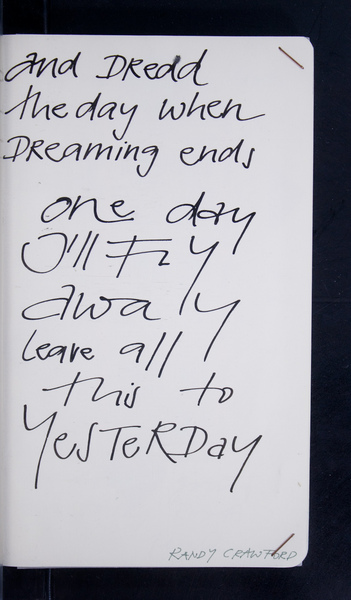 and DReDD
the day when
DReaming ends
one day
I'll FLY
away
leave all
this to
YeSTeRDay
RANDY CRAWFORD